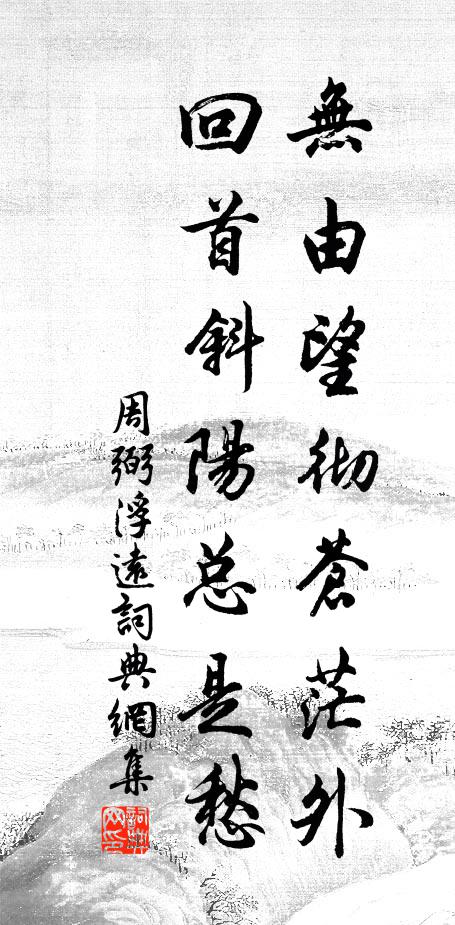 無由望彻蒼茫外
回首斜陽总是愁
周弼浮遠詞典網集